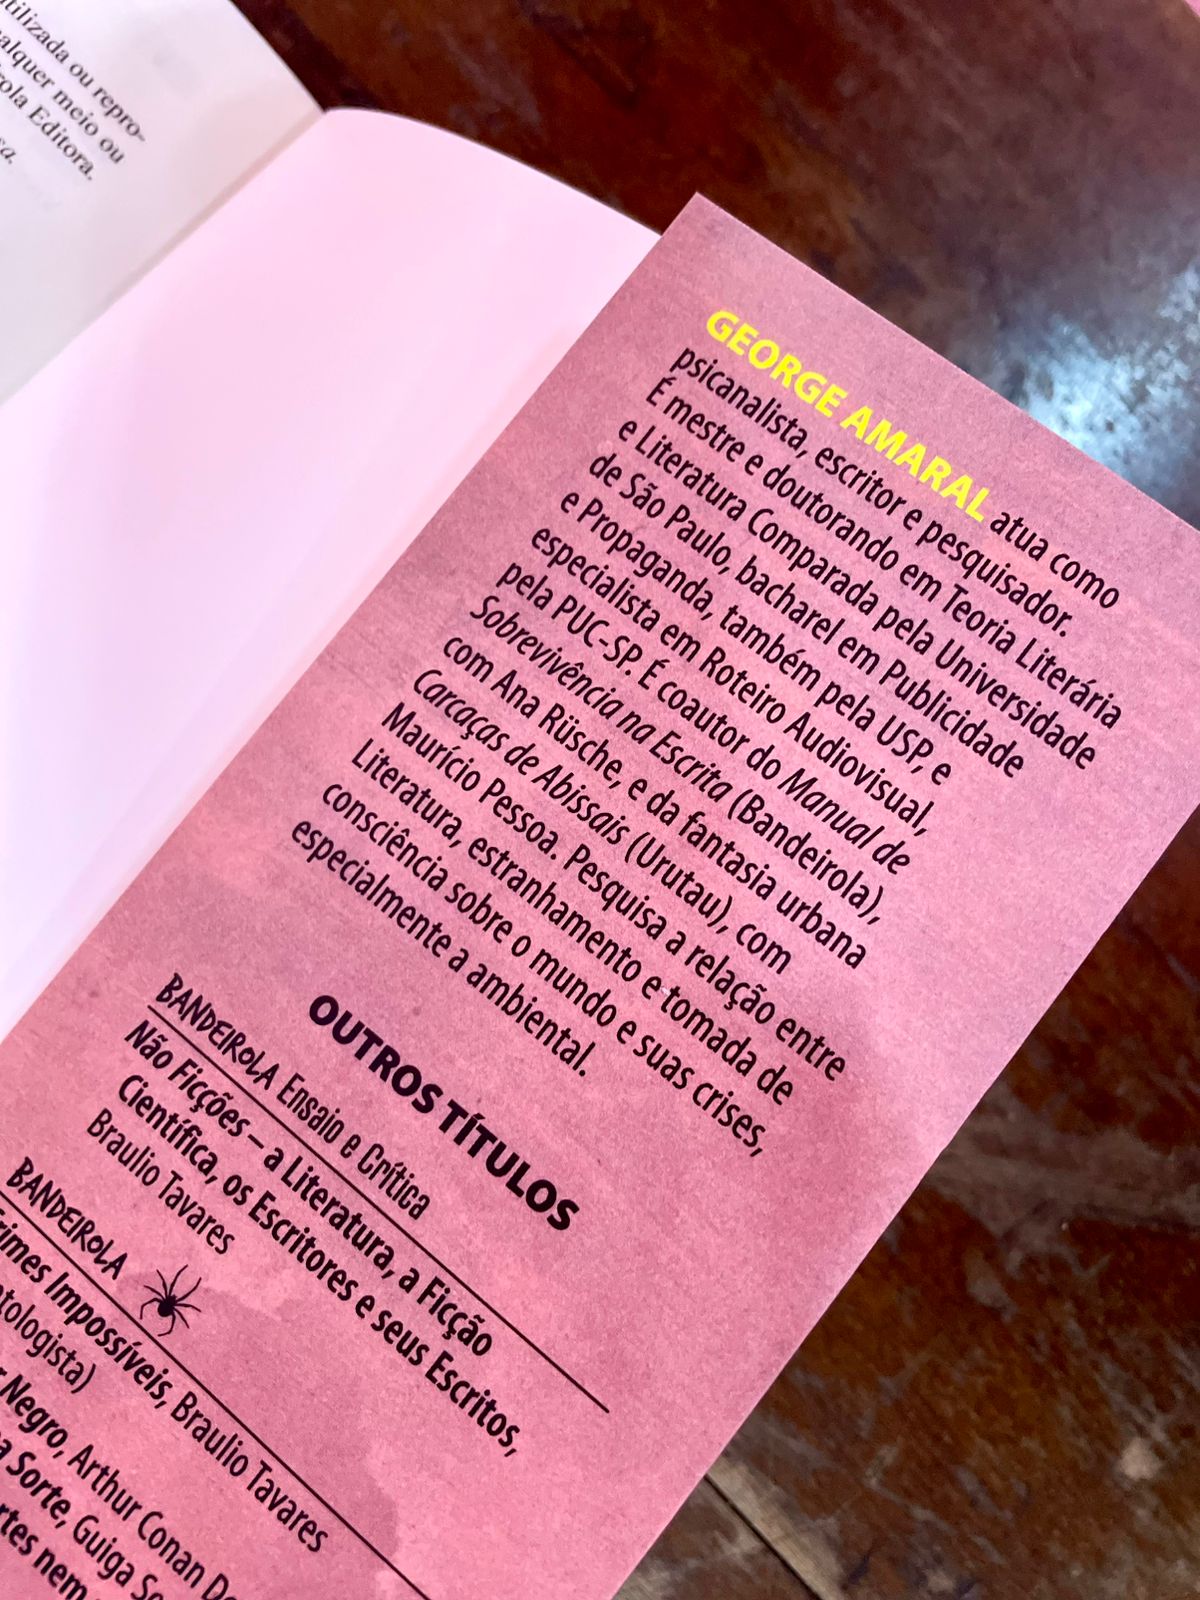 tilizada ou repro-
alquer meio ou
rola Editora.
GEORGE AMARAL atua como
psicanalista, escritor e pesquisador.
É mestre e doutorando em Teoria Literária
e Literatura Comparada pela Universidade
de São Paulo, bacharel em Publicidade
e Propaganda, também pela USP, e
especialista em Roteiro Audiovisual,
pela PUC-SP. É coautor do Manual de
Sobrevivência na Escrita (Bandeirola),
com Ana Rüsche, e da fantasia urbana
Carcaças de Abissais (Urutau), com
Maurício Pessoa. Pesquisa a relação entre
Literatura, estranhamento e tomada de
consciência sobre o mundo e suas crises,
especialmente a ambiental.
OUTROS TÍTULOS
BANDEIROLA Ensaio e Crítica
Não Ficções – a Literatura, a Ficção
Científica, os Escritores e seus Escritos,
Braulio Tavares
BANDEIROLA
rimes Impossíveis, Braulio Tavares
tologista)
Negro, Arthur Conan Do
a Sorte, Guiga So
rtes nem